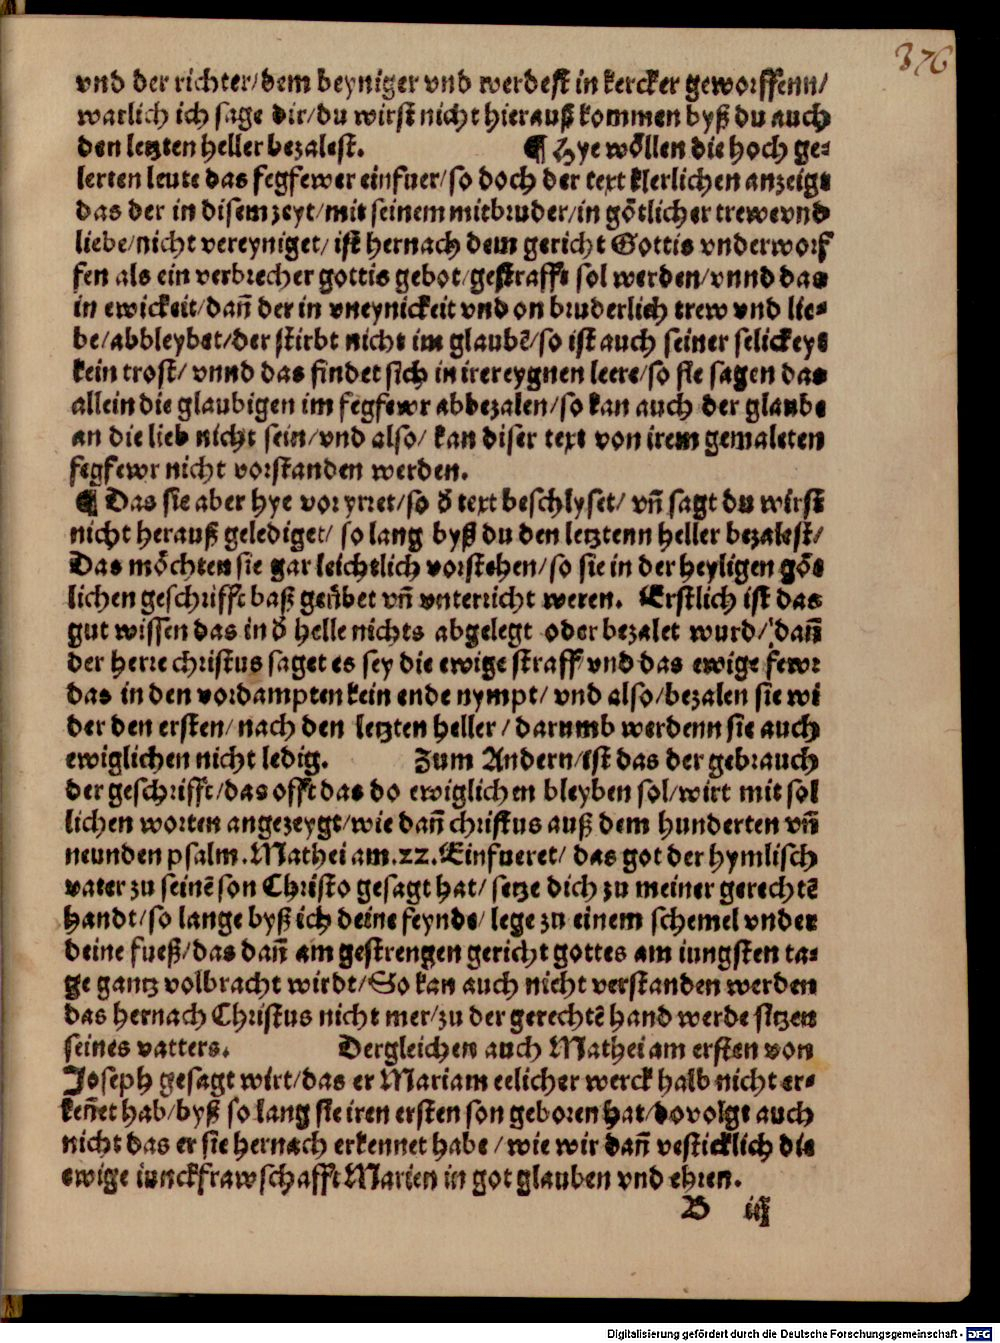 376
vnd der richter/dem beyniger vnd werdest in kercker geworffenn/
warlich ich sage dir/du wirst nicht hierauß kommen byß du auch
den letzten heller bezalest. ¶ Hye wöllen die hoch ge-
lerten leute das fegfewer einfuer/so doch der text klerlichen anzeigt
das der in disem zeyt/mit seinem mitbruder/in götlicher trewe vnd
liebe/nicht vereyniget/ ist hernach dem gericht Gottis vnderworf
fen als ein verbrecher gottis gebot/gestrafft sol werden/vnnd das
in ewickeit/dañ der in vneynickeit vnd on bruderlich trew vnd lie-
be/abbleybet/der stirbt nicht im glaubẽ/so ist auch seiner selickeyt
kein trost/ vnnd das findet sich in irereygnen leere/so sie sagen das
allein die glaubigen im fegfewr abbezalen/so kan auch der glaube
an die lieb nicht sein/vnd also/ kan diser text von irem gemaleten
fegfewr nicht vorstanden werden.
¶ Das sie aber hye vor yrret/so d̕ text beschlyset/ vñ sagt du wirst
nicht herauß gelediget/ so lang byß du den letztenn heller bezalest/
Das möchten sie gar leichtlich vorstehen/so sie in der heyligen göt
lichen geschrifft baß geübet vñ vnterricht weren. Erstlich ist das
gut wissen das in d̕ helle nichts abgelegt oder bezalet wurd/ dañ
der herre christus saget es sey die ewige straff vnd das ewige fewr
das in den vordampten kein ende nympt/ vnd also/bezalen sie wi
der den ersten/ nach den letzten heller / darumb werdenn sie auch
ewiglichen nicht ledig. Zum Andern/ist das der gebrauch
der geschrifft/das offt das do ewiglichen bleyben sol/wirt mit sol
lichen worten angezeygt/wie dañ christus auß dem hunderten vñ
neunden psalm.Mathei am.22.Einfueret/ das got der hymlisch
vater zu seinẽ son Christo gesagt hat/ setze dich zu meiner gerechtẽ
handt/so lange byß ich deine feynde/ lege zu einem schemel vnder
deine fueß/das dañ am gestrengen gericht gottes am iungsten ta-
ge gantz volbracht wirdt/So kan auch nicht verstanden werden
das hernach Christus nicht mer/zu der gerechtẽ hand werde sitzen
seines vatters. Dergleichen auch Mathei am ersten von
Joseph gesagt wirt/das er Mariam eelicher werck halb nicht er-
keñet hab/byß so lang sie iren ersten son geboren hat/dovolgt auch
nicht das er sie hernach erkennet habe / wie wir dañ vesticklich die
ewige iunckfrawschafft Marien in got glauben vnd ehren.
B iij
Digitalisierung gefördert durch die Deutsche Forschungsgemeinschaft - DFG